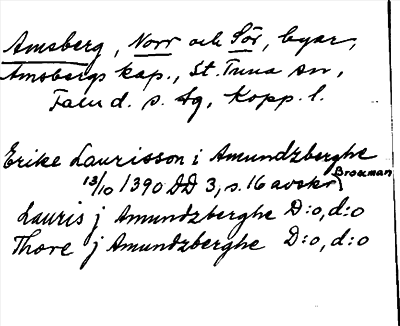 Amsberg, Norr och Sör, byar,
Amsbergs kap., St. Tuna sn,
Falu d. s. dg, Kopp. l.
Erike Laurisson i Amundzberghe
13/10 1390 DD 3, s. 16 avskr Brocman
Lauris j Amundzberghe D:o, d:o
Thore j Amundzberghe D:o, d:o